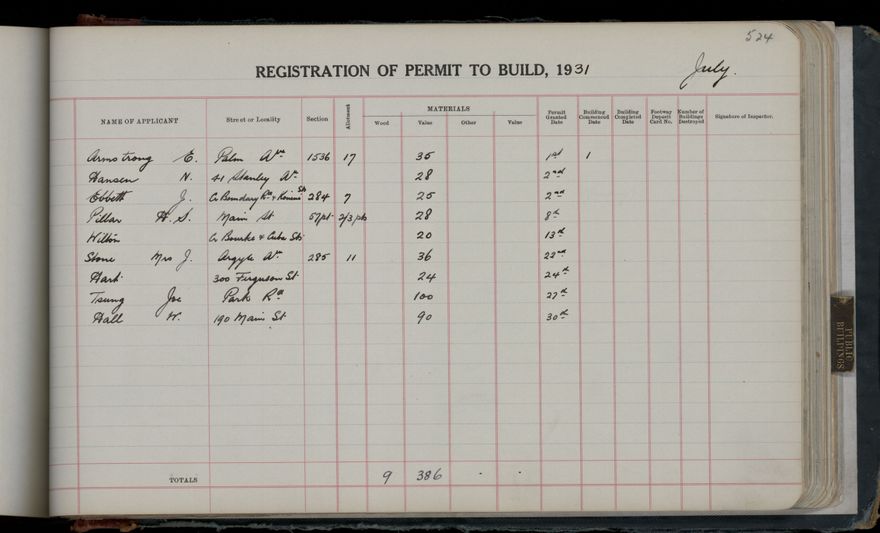 524
REGISTRATION OF PERMIT TO BUILD, 1931
July.
NAME OF APPLICANT Street or Locality Section Allotment MATERIALS Wood Value Other Value Permit Granted Date Building Commenced Date Building Completed Date Footway Deposit Card No. Number of Buildings Destroyed Signature of Inspector.
Armstrong E. Palm Ave 1536 17 35 1st 1
Hansen N. 41 Stanley Av. 28 2nd
Ebbett J. Cr Boundary Rd & Sts 284 7 25 2nd
Pillar H. S. Main St 57pt 2/3 pts 28 8th
Wilton Cr Bourke & Cuba Sts 20 13th
Stone Mrs J. Argyle Av. 285 11 36 22nd
Hart 300 Ferguson St 24 24th
Tsung Joe Park Rd 100 27th
Hall W. 190 Main St 90 30th
TOTALS 9 386 - -
PUBLIC
BUILDINGS